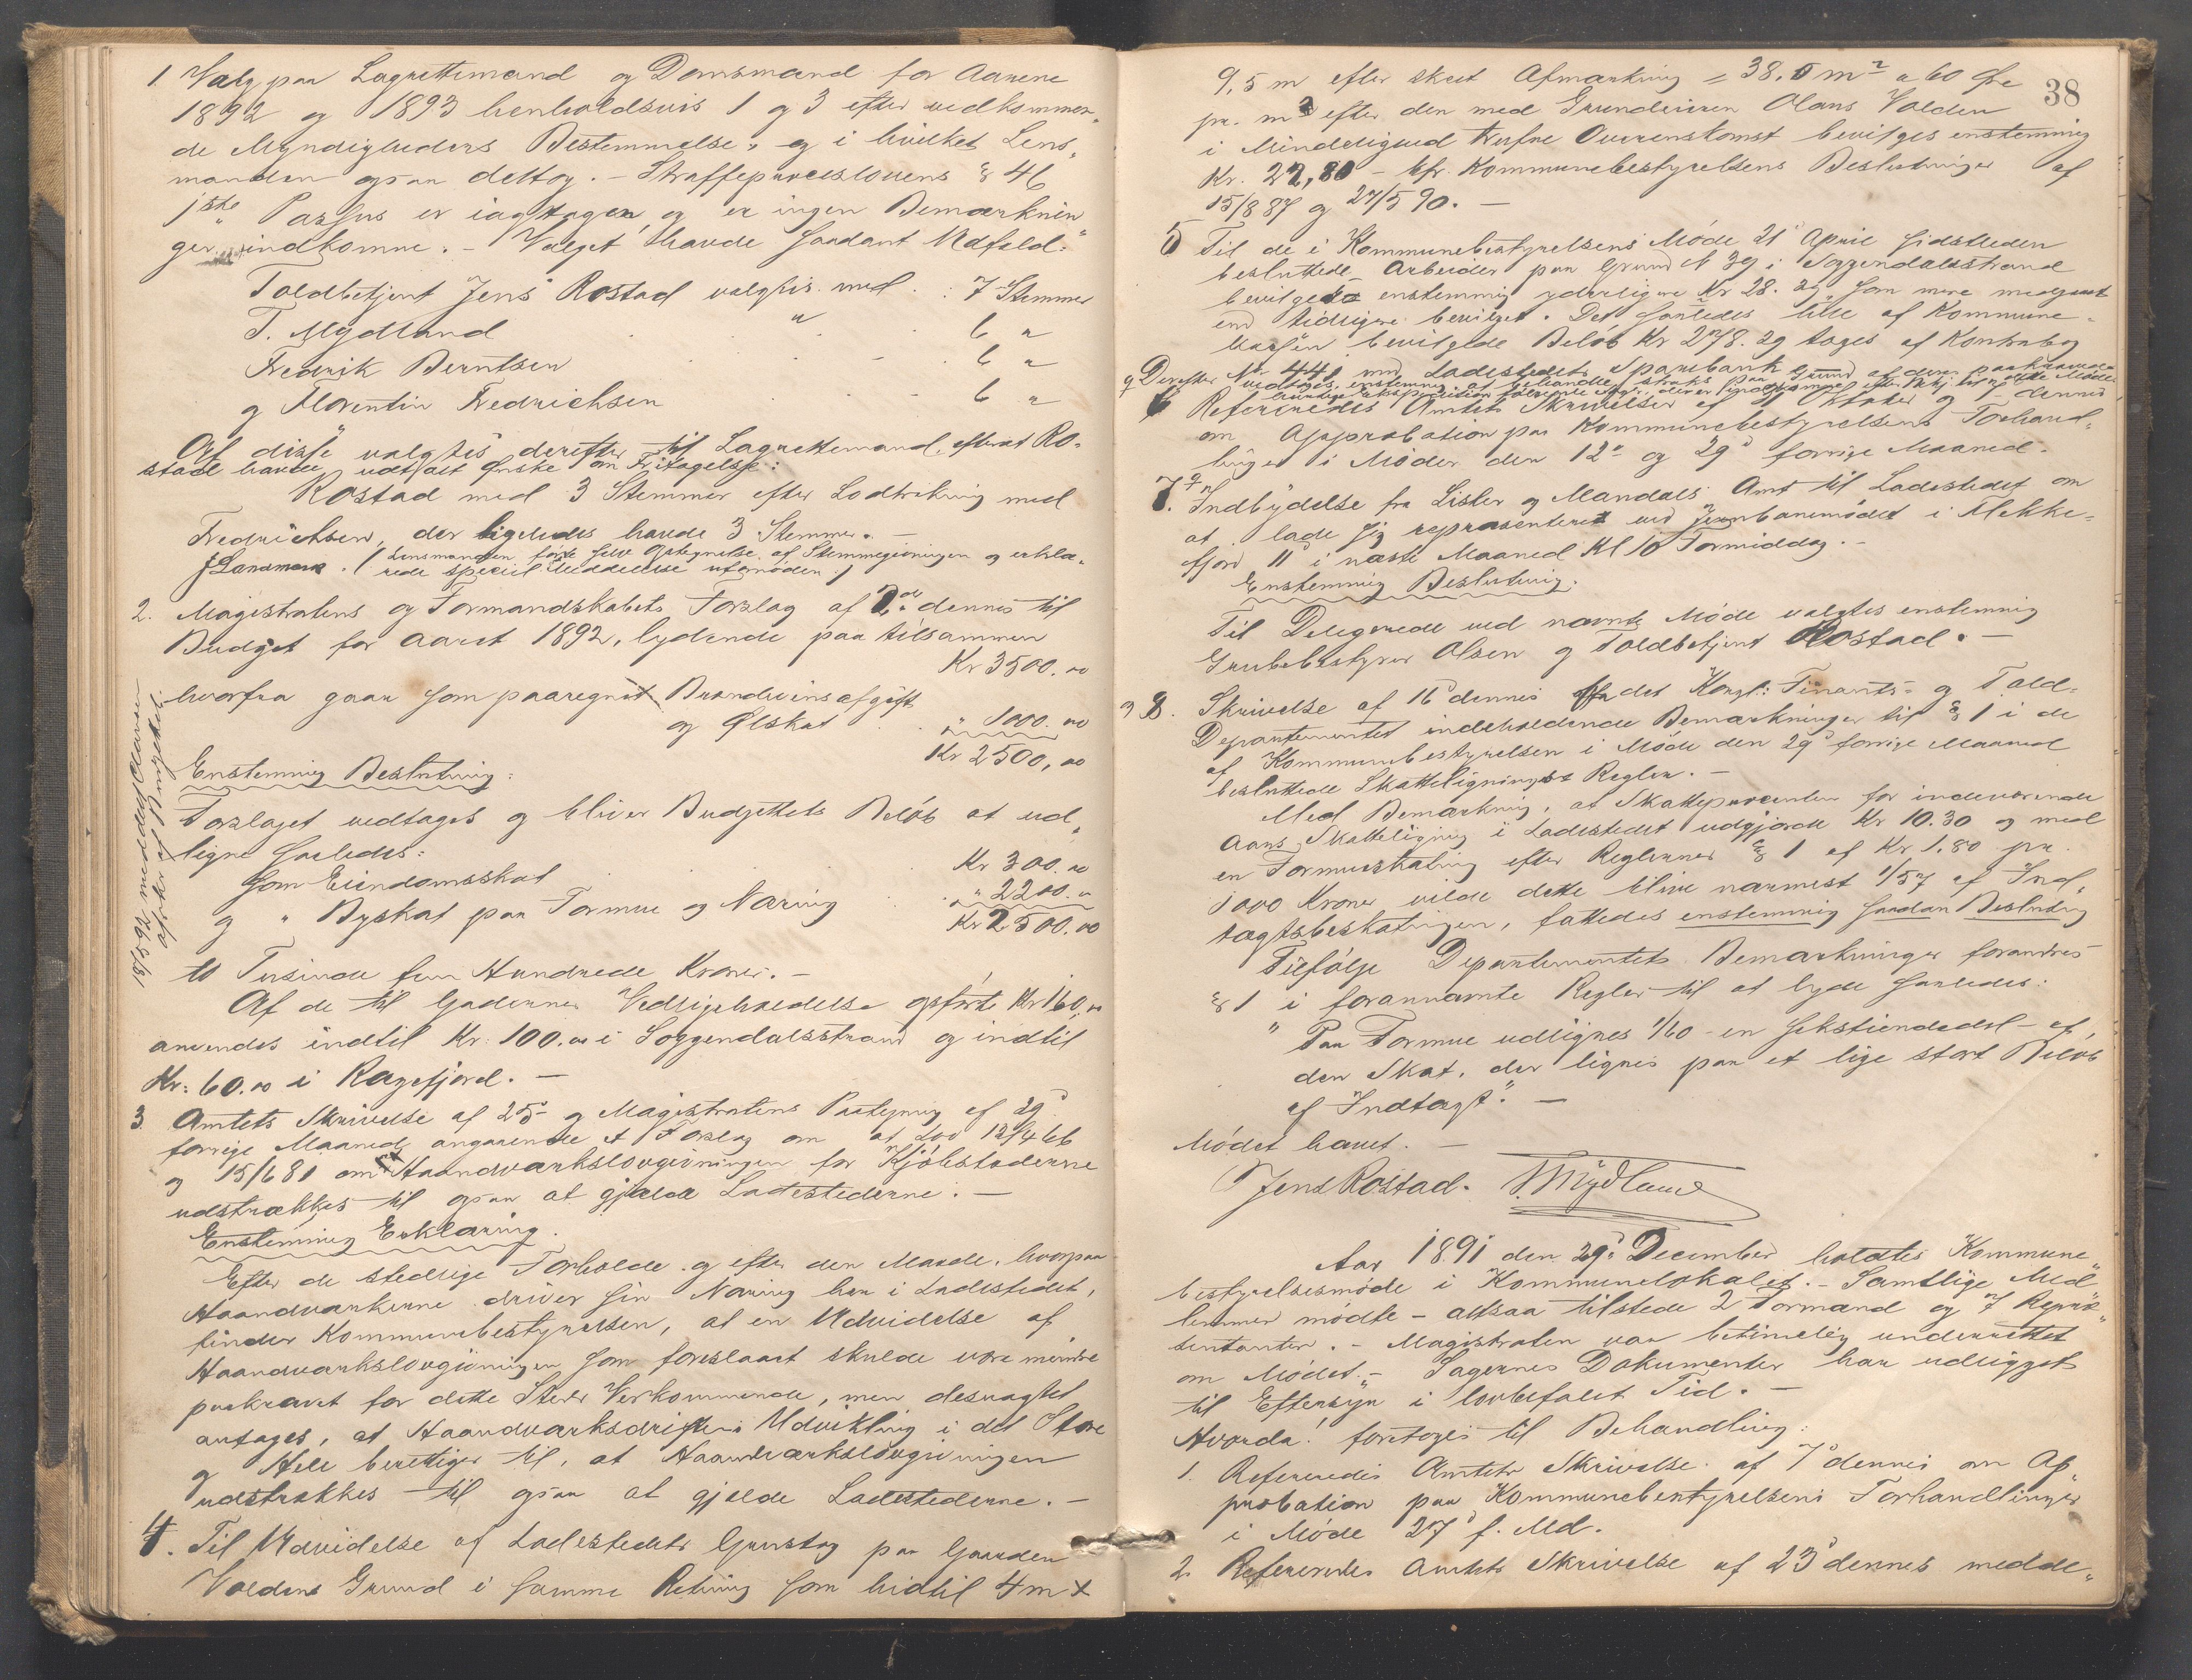 1. Valg paa Lagrettemænd og Domsmænd for Aarene
1892 og 1893 henholdsvis 1 og 3 efter vedkommen„
de Myndigheders Bestemmelse, og i hvilket Lens„
manden ogsaa deltog. – Straffeproceslovens § 46
1ste Passus er iagttagen og er ingen Bemærknin„
ger indkomne. – Valget havde saadant Udfald:
Toldbetjent Jens Rostad valgtes med . : 7 Stemmer
T. Mydland " . 6 "
Fredrik Berntsen . . . 6 "
og Florentin Fredrichsen . . . 6 "
Af disse valgtes derefter til Lagrettemænd, efterat Ro„
stad havde udtalt Ønske om Fritagelse:
Rostad med 3 Stemmer efter Lodtrækning med
Fredrichsen, der ligeledes havde 3 Stemmer. –
Lensmanden førte selv Optegnelse af Stemmegivningen og erklæ„
rede speciel Meddelelse ufornøden.
2. Magistratens og Formandskabets Forslag af dennes til
Budget for Aaret 1892, lydende paa tilsammen
Kr 3500.00
hvorfra gaar som paaregnet Brændevinsafgift
og Ølskat . . " 1000.00
Kr 2500,00
Enstemmig Beslutning:
Forslaget vedtages og bliver Budgettets Beløb at ud„
ligne saaledes:
Som Eiendomsskat . . . Kr 300.00
og " Byskat paa Formue og Næring . . " 2200.00
Kr 2500.00
to Tusinde fem Hundrede Kroner. –
Af de til Gadernes Vedligeholdelse opførte Kr 160,00
anvendes indtil Kr. 100.00 i Soggendalsstrand og indtil
Kr: 60.00 i Rægefjord. –
18/5 92 meddelt
afskr. af Budgettet.
3. Amtets Skrivelse af 25 og Magistratens Paategning af 29
forrige Maaned angaaende et Forslag om at Lov
og 15/6 81 om Haandværkslovgivningen for Kjøbstæderne
udstrækkes til ogsaa at gjælde Ladestederne. –
Enstemmig Erklæring.
Efter de stedlige Forholde og efter den Maade, hvorpaa
Haandværkerne driver sin Næring her i Ladestedet,
finder Kommunebestyrelsen, at en Udvidelse af
Haandværkslovgivningen som foreslaaet skulde være mindre
paakrævet for dette Steds Vedkommende, men desuagtet
antages, at Haandværksdriftens Udvikling i det Store
og Hele berettiger til, at Haandværkslovgivningen
udstrækkes til ogsaa at gjælde Ladestederne. –
4. Til Udvidelse af Ladestedets Grustag paa Gaarden
Voldens Grund i samme Retning som hidtil 4 m x
38
9,5 m efter skeet Afmærkning = 38,0 m² a 60 Øre
pr. m² efter den med Grundeieren Olaus Volden
i Mindelighed trufne Overenskomst bevilges enstemmig
Kr. 22,80 – kfr. Kommunebestyrelsens Beslutninger af
15/8 87 og 27/5 90. –
5 Til de i Kommunebestyrelsens Møde 21 April sidstleden
besluttede Arbeider paa Grund No 39 i Soggendalsstrand
bevilgedes enstemmig yderligere Kr 28.29 som mere medgaaet
end tidligere bevilget. Det saaledes ialt af Kommune„
kassen bevilgede Beløb Kr 278.29 tages af Kontrabog
No 441 med Ladestedets Sparebank.
6 Refereredes Amtets Skrivelser af Oktober og dennes
om Approbation paa Kommunebestyrelsens Forhand„
linger i Møder den 12 og 29 forrige Maaned.
7. Indbydelse fra Lister og Mandals Amt til Ladestedet om
at lade sig repræsentere ved Jernbanemødet i Flekke„
fjord 11 i næste Maaned Kl 10 Formiddag. –
Enstemmig Beslutning.
Til Delegerede ved nævnte Møde valgtes enstemmig
Grubebestyrer Olsen og Toldbetjent Rostad. –
8. Skrivelse af 16 dennes fra det Kongl: Finants- og Told-
Departementet indeholdende Bemærkninger til § 1 i de
af Kommunebestyrelsen i Møde den 29 forrige Maaned
besluttede Skatteligningsregler. –
Med Bemærkning, at Skatteprocenten for indeværende
Aars Skatteligning i Ladestedet udgjorde Kr 10.30 og med
en Formueskatning efter Reglernes § 1 af Kr 1.80 pr.
1000 Kroner vilde dette blive nærmest 1/57 af Ind„
tægtsbeskatningen, fattedes enstemmig saadan Beslutning
Tilfølge Departementets Bemærkninger forandres
§ 1 i forannævnte Regler til at lyde saaledes:
" Paa Formue udlignes 1/60 – en sekstiendedel – af
den Skat, der lignes paa et lige stort Beløb
af Indtægt." –
Mødet hævet. –
Jens Rostad. T. Mydland
Aar 1891 den 29 December holdtes Kommune„
bestyrelsesmøde i Kommunelokalet. – Samtlige Med„
lemmer mødte – altsaa tilstede 2 Formænd og 7 Repræ„
sentanter. – Magistraten var betimelig underrettet
om Mødet. – Sagernes Dokumenter har udligget
til Eftersyn i lovbefalet Tid. –
Hvorda! foretoges til Behandling:
1. Refereredes Amtets Skrivelse af 7 dennes om Ap„
probation paa Kommunebestyrelsens Forhandlinger
i Møde 27 f. Md.
2. Refereredes Amtets Skrivelse af 23 dennes medde„